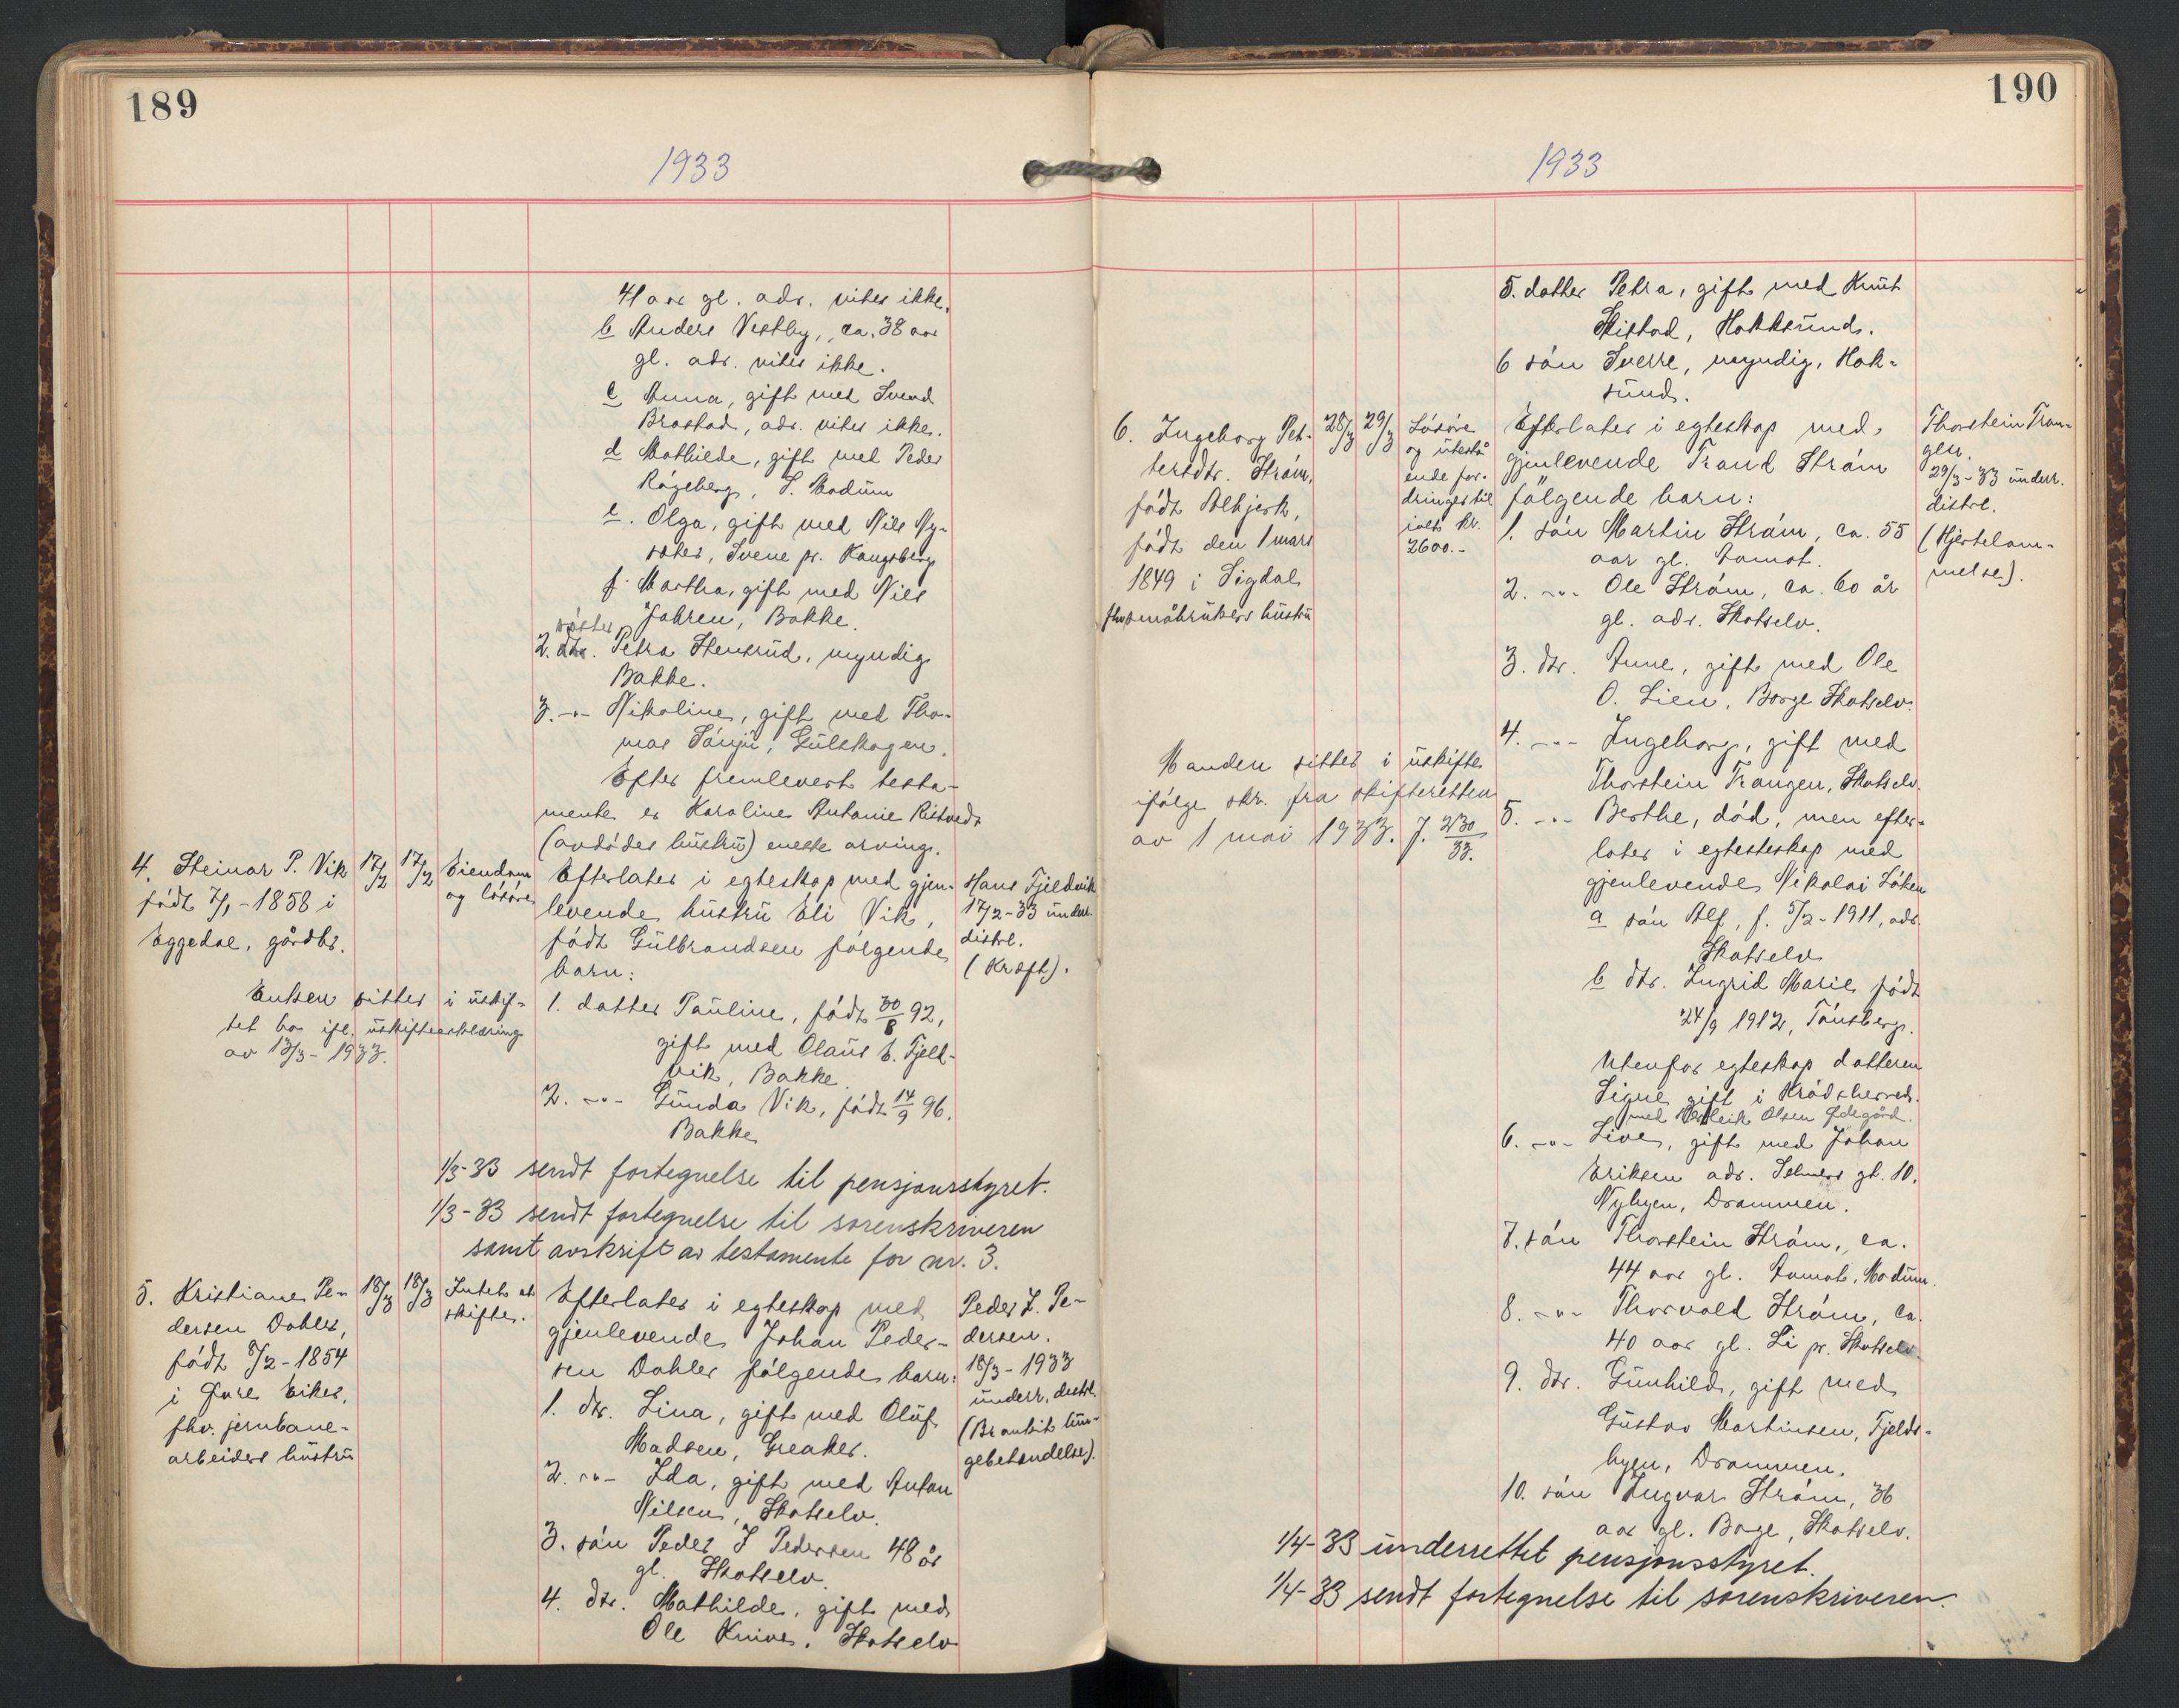 189
1933
41 aar gl. adr. vites ikke.
b Anders Vestby, ca. 38 aar
gl. adr. vites ikke.
c Anna, gift med Svend
Brastad, adr. vites ikke.
d Mathilde, gift med Peder
Rögeberg, S. Modum
e. Olga, gift med Nils Ny-
sæter, Svene pr. Kongsberg
f. Martha, gift med Nils
Jahren, Bakke.
søster
2. dtr. Petra Stensrud, myndig
Bakke.
3. -"- Nikoline, gift med Tho-
mas Sönju, Gulskogen.
Efter fremlevert testa-
mente er Karoline Antonie Ristvedt
(avdödes hustru) eneste arving.
4. Steinar P. Vik
födt 7/1-1858 i
Eggedal, gårdbr.
17/2
17/2
Eiendom
og lösöre
Efterlater i egteskap med gjen-
levende hustru Eli Vik,
födt Gulbrandsen følgende
barn:
Hans Fjeldvik
17/2-33 underr.
distrl.
(Kræft).
Enken sitter i uskif-
tet bo ifl. uskifteerklæring
av 13/3-1933.
1. datter Pauline, födt 30/8 92,
gift med Olaus E. Fjeld-
vik, Bakke.
2. -"- Gunda Vik, födt 14/9 96.
Bakke
1/3-33 sendt fortegnelse til pensjonsstyret.
1/3-33 sendt fortegnelse til sorenskriveren
samt avskrift av testamente for nr. 3.
5. Kristiane Pe-
dersen Dahler,
födt 8/2-1854
i Øvre Eiker,
fhv. jernbane-
arbeiders hustru
18/3
18/3
Intet at
skifte.
Efterlater i egteskap med
gjenlevende Johan Peder-
sen Dahler fölgende barn:
1. dtr. Lina, gift med Oluf
Madsen, Greaker.
2. -"- Ida, gift med Anton
Nilsen, Skotselv.
3. sön Peder J Pedersen 48 år
gl. Skotselv.
4. dtr. Mathilde, gift med
Ole Knive. Skotselv
Peder J. Pe-
dersen.
18/3-1933
underr. distrl.
(Bronkit lun-
gebetendelse).
190
1933
5. datter Petra, gift med Knut
Skistad, Hokksund.
6 sön Sverre, myndig, Hok-
sund.
6. Ingeborg Pet-
tersdtr. Ström,
födt Albjerk,
födt den 1 mars
1849 i Sigdal
fhv småbrukers hustru
28/3
29/3
Lösöre
og utestå
ende for-
dringer til
ialt kr.
2600.-
Efterlater i egteskap med
gjenlevende Trond Ström
fölgende barn:
1. Sön Martin Ström, ca. 55
aar gl. Aamot.
2. -"- Ole Ström, ca. 60 år
gl. adr. Skotselv.
3. dtr. Anne, gift med Ole
O. Lien, Borge Skotselv.
4. -"- Ingeborg, gift med
Thorstein Trangen, Skotselv.
5. -"- Berthe, död, men efter-
later i egtesteskap med
gjenlevende Nikolai Löken
a sön Alf, f. 5/2-1911, adr.
Skotselv
b dtr. Ingrid Marie födt
24/9 1912, Tönsberg.
Utenfor egteskap datteren
Signe gift i Krödsherred.
med Olsen Ødegård.
6. -"- Live, gift med Johan
Eriksen adr. Selmers gt. 10.
Nybyen, Drammen.
7. sön Thorstein Ström, ca.
44 aar gl. Aamot, Modum.
8. -"- Thorvald Ström, ca.
40 aar gl. Li pr. Skotselv.
9. dtr. Gunhild, gift med
Gustav Martinsen, Fjelds-
byen, Drammen.
10. sön Ingvar Ström, 36
aar gl. Borge, Skotselv.
Thorstein Tran-
gen.
29/3-33 underr.
distrl.
(Hjertelam-
melse).
Manden sitter i uskifte
ifölge skr. fra skifteretten
av 1 mai 1933. J. 230/33.
1/4-33 underrettet pensjonsstyret.
1/4-33 sendt fortegnelse til sorenskriveren.